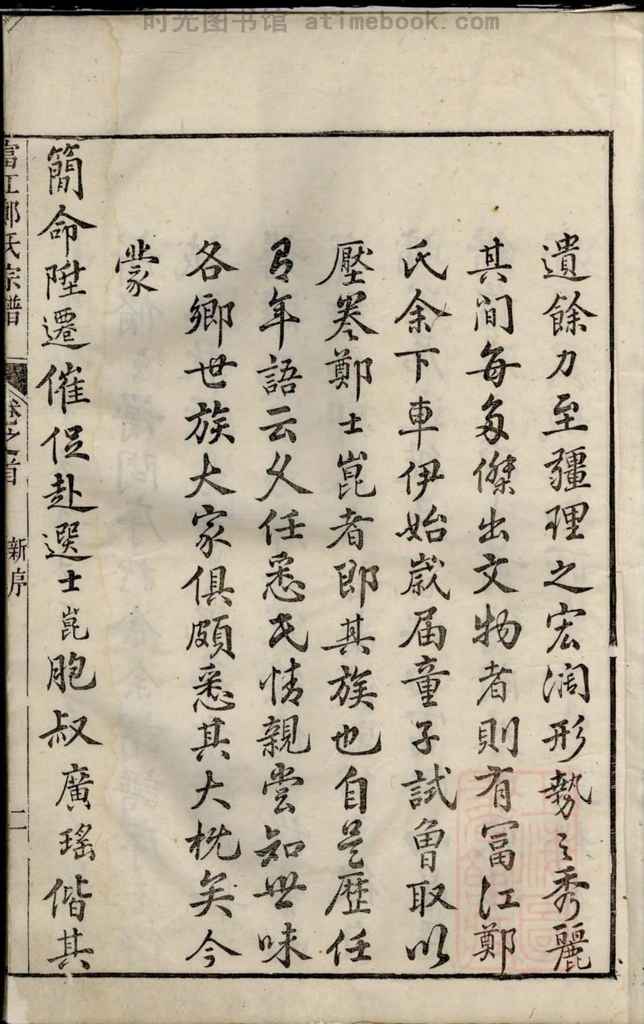 时光图书馆 www.atimebook.com
遺餘力至疆理之宏濶形勢之秀麗
其间每多傑出文物者則有富江鄭
氏余下車伊始嵗届童子試曾取以
壓卷鄭士崑者即其族也自是歴任
有年語云久任悉民情親嘗知世味
各鄉世族大家俱頗悉其大槩矣今
蒙
簡命陞遷催促赴選士崑胞叔廣瑤偕其
富江鄭氏宗譜 卷之首 新序 二